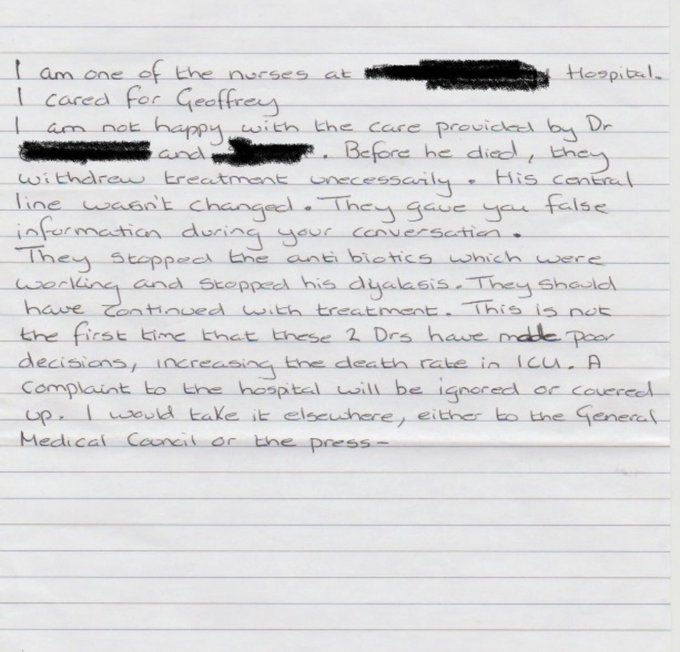 I am one of the nurses at Hospital.
I cared for Geoffrey
I am not happy with the care provided by Dr
and . Before he died, they
withdrew treatment unecessarily. His central
line wasn't changed. They gave you false
information during your conversation.
They stopped the antibiotics which were
working and stopped his dyalasis. They should
have continued with treatment. This is not
the first time that these 2 Drs have made poor
decisions, increasing the death rate in ICU. A
complaint to the hospital will be ignored or covered
up. I would take it elsewhere, either to the General
Medical Council or the press-